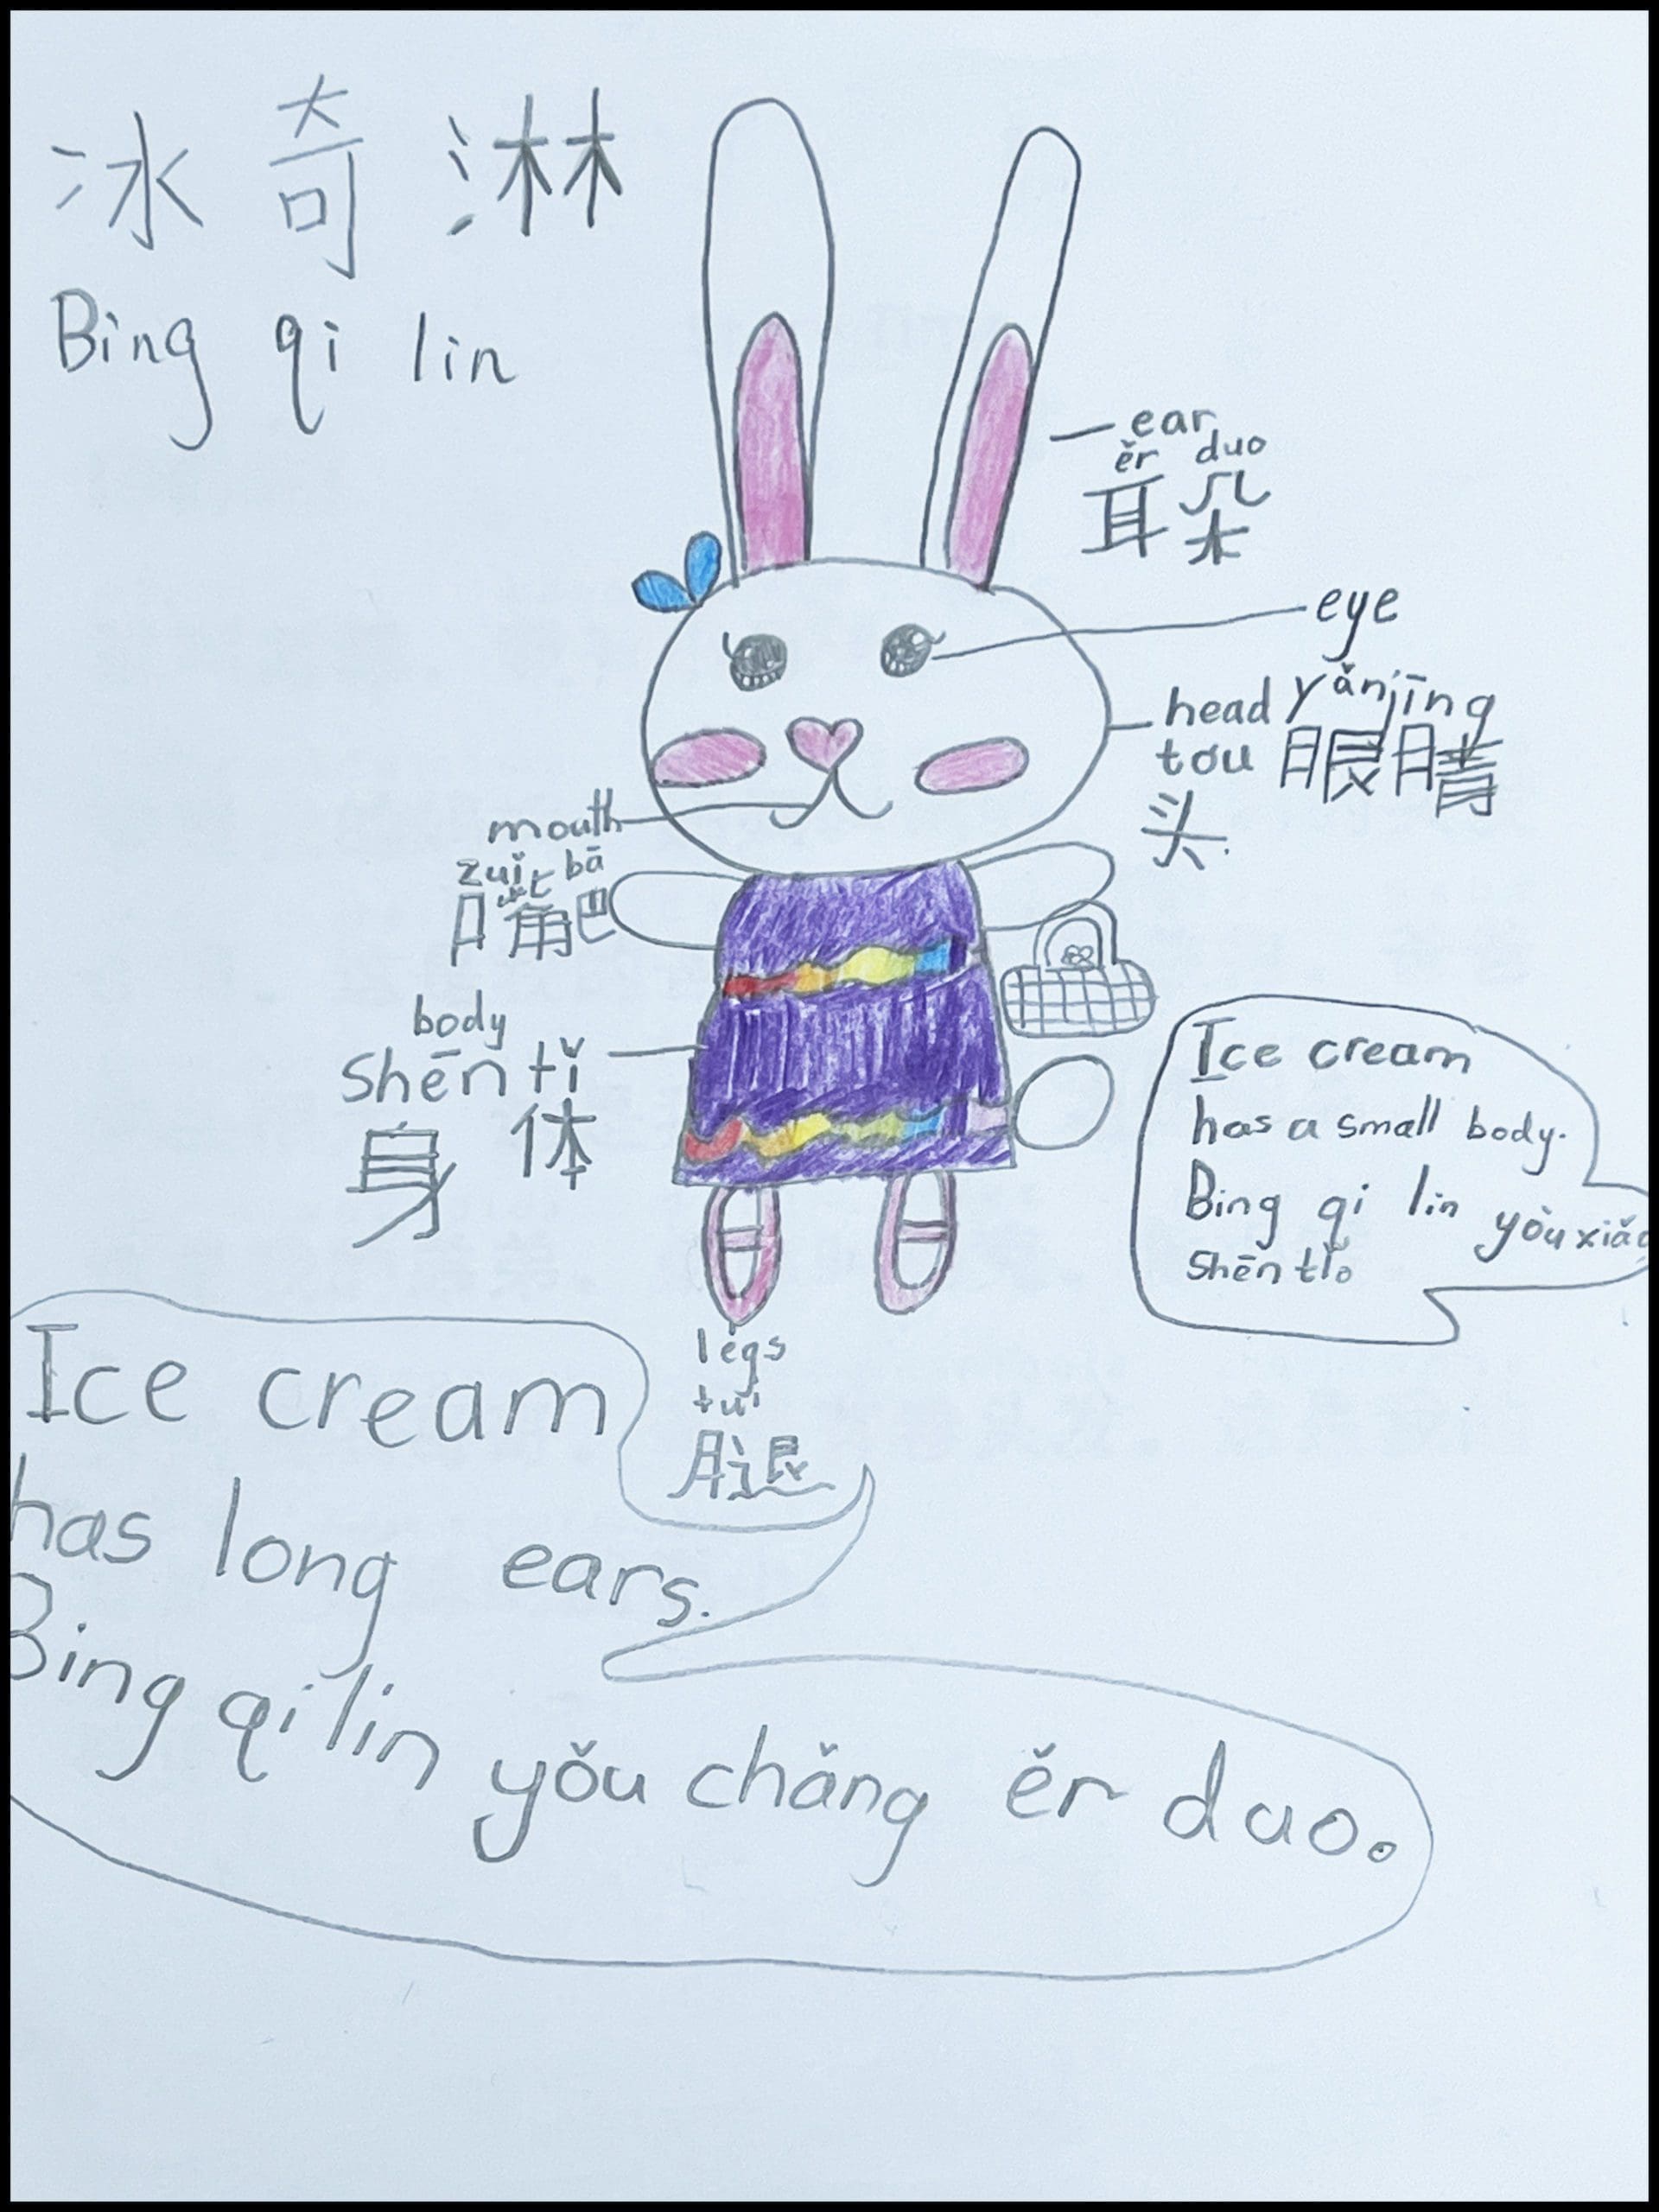 冰奇淋
Bing qi lin
ear
ěr duo
耳朵
eye
yǎnjīng
眼睛
head
tóu
头
mouth
zuǐ bā
嘴巴
body
shēn tǐ
身体
Ice cream
has a small body.
Bing qi lin yòu xiǎo
shēn tǐ。
legs
tuǐ
腿
Ice cream
has long ears.
Bing qi lin yǒu chǎng ěr duo。